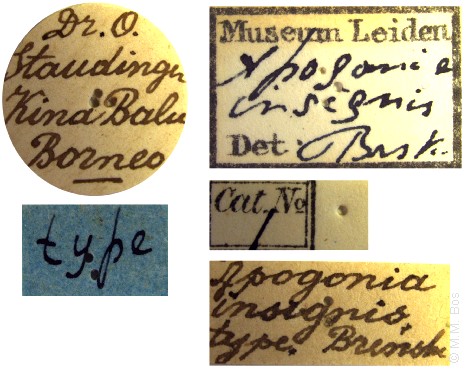 Dr. O.
Staudinger
Kina Balu
Borneo
Museum Leiden
Apogonia
insignis
Det:
type
Cat. No
Apogonia
insignis,
type. Brenske
© M.M. Bos